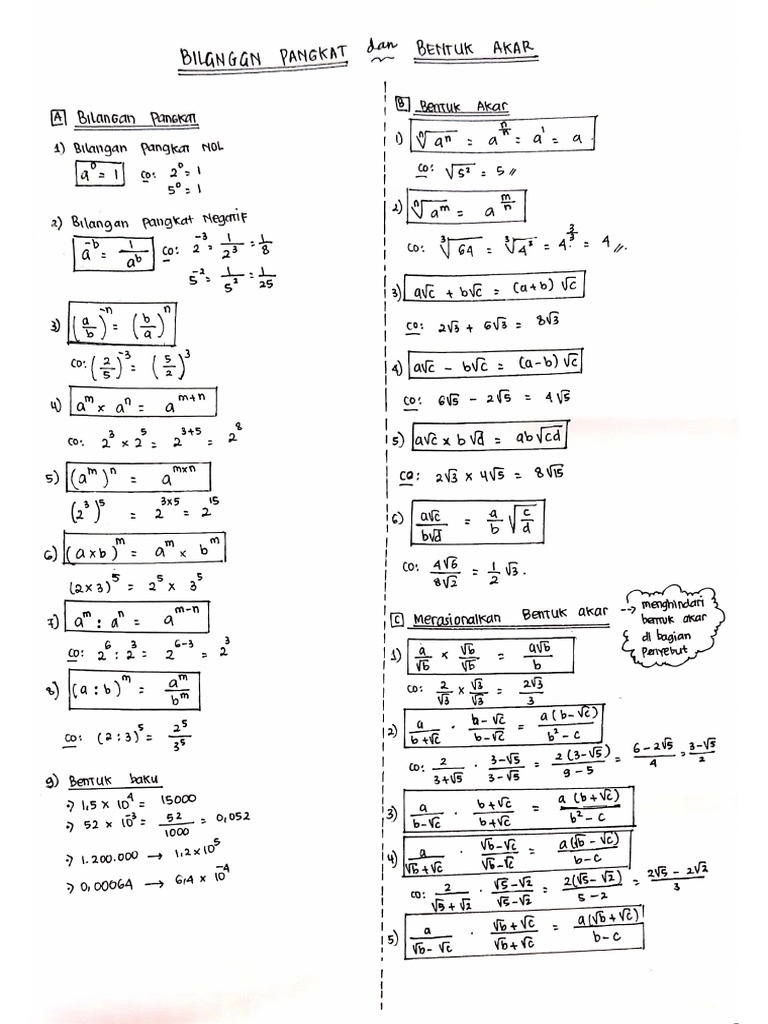 BILANGAN PANGKAT dan BENTUK AKAR
A Bilangan Pangkat
1) Bilangan Pangkat NOL
a⁰ = 1 co: 2⁰ = 1
5⁰ = 1
2) Bilangan Pangkat Negatif
a⁻ᵇ = 1/aᵇ co: 2⁻³ = 1/2³ = 1/8
5⁻² = 1/5² = 1/25
3) (a/b)⁻ⁿ = (b/a)ⁿ
co: (2/5)⁻³ = (5/2)³
4) aᵐ × aⁿ = aᵐ⁺ⁿ
co: 2³ × 2⁵ = 2³⁺⁵ = 2⁸
5) (aᵐ)ⁿ = aᵐˣⁿ
(2³)⁵ = 2³ˣ⁵ = 2¹⁵
6) (a×b)ᵐ = aᵐ × bᵐ
(2×3)⁵ = 2⁵ × 3⁵
7) aᵐ : aⁿ = aᵐ⁻ⁿ
co: 2⁶ : 2³ = 2⁶⁻³ = 2³
8) (a : b)ᵐ = aᵐ/bᵐ
co: (2 : 3)⁵ = 2⁵/3⁵
9) Bentuk baku
:) 1,5 × 10⁴ = 15000
:) 52 × 10⁻³ = 52/1000 = 0,052
:) 1.200.000 → 1,2 × 10⁵
:) 0,00064 → 6,4 × 10⁻⁴
B Bentuk Akar
1) ⁿ√aⁿ = a^(n/n) = a¹ = a
co: √5² = 5 //
2) ⁿ√aᵐ = a^(m/n)
co: ³√64 = ³√4³ = 4^(3/3) = 4 //.
3) a√c + b√c = (a+b) √c
co: 2√3 + 6√3 = 8√3
4) a√c - b√c = (a-b) √c
co: 6√5 - 2√5 = 4√5
5) a√c × b√d = ab√cd
co: 2√3 × 4√5 = 8√15
6) a√c/b√d = a/b √(c/d)
co: 4√6/8√2 = 1/2 √3.
C Merasionalkan Bentuk akar --→ menghindari
bentuk akar
di bagian
penyebut
1) a/√b × √b/√b = a√b/b
co: 2/√3 × √3/√3 = 2√3/3
2) a/(b+√c) · (b-√c)/(b-√c) = a(b-√c)/(b²-c)
co: 2/(3+√5) · (3-√5)/(3-√5) = 2(3-√5)/(9-5) = (6-2√5)/4 = (3-√5)/2
3) a/(b-√c) · (b+√c)/(b+√c) = a(b+√c)/(b²-c)
4) a/(√b+√c) · (√b-√c)/(√b-√c) = a(√b-√c)/(b-c)
co: 2/(√5+√2) · (√5-√2)/(√5-√2) = 2(√5-√2)/(5-2) = (2√5-2√2)/3
5) a/(√b-√c) · (√b+√c)/(√b+√c) = a(√b+√c)/(b-c)